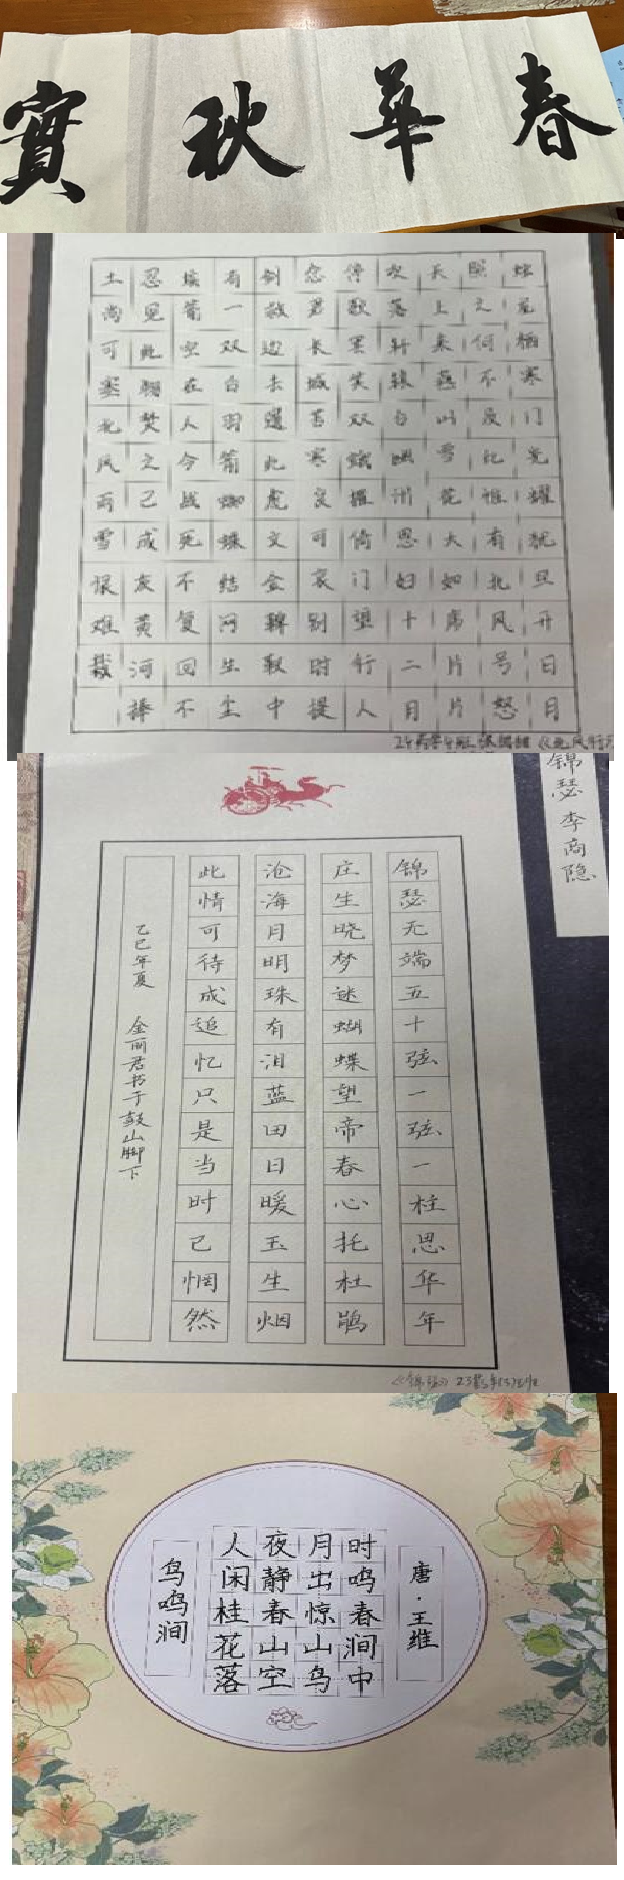 春華秋實
烛龙栖寒门光耀犹旦开日月
照之何不及此唯有北风号怒
天上来燕山雪花大如席片片
吹落轩辕台幽州思妇十二月
停歌罢笑双蛾摧倚门望行人
念君长城苦寒良可哀别时提
剑救边去遗此虎文金鞞靫中
有一双白羽箭蜘蛛结网生尘
埃箭空在人今战死不复回不
忍见此物焚之已成灰黄河捧
土尚可塞北风雨雪恨难裁
《北风行》
锦瑟 李商隐
锦瑟无端五十弦一弦一柱思华年
庄生晓梦迷蝴蝶望帝春心托杜鹃
沧海月明珠有泪蓝田日暖玉生烟
此情可待成追忆只是当时已惘然
乙巳年夏 金丽君书于鼓山脚下
鸟鸣涧
人闲桂花落
夜静春山空
月出惊山鸟
时鸣春涧中
唐·王维